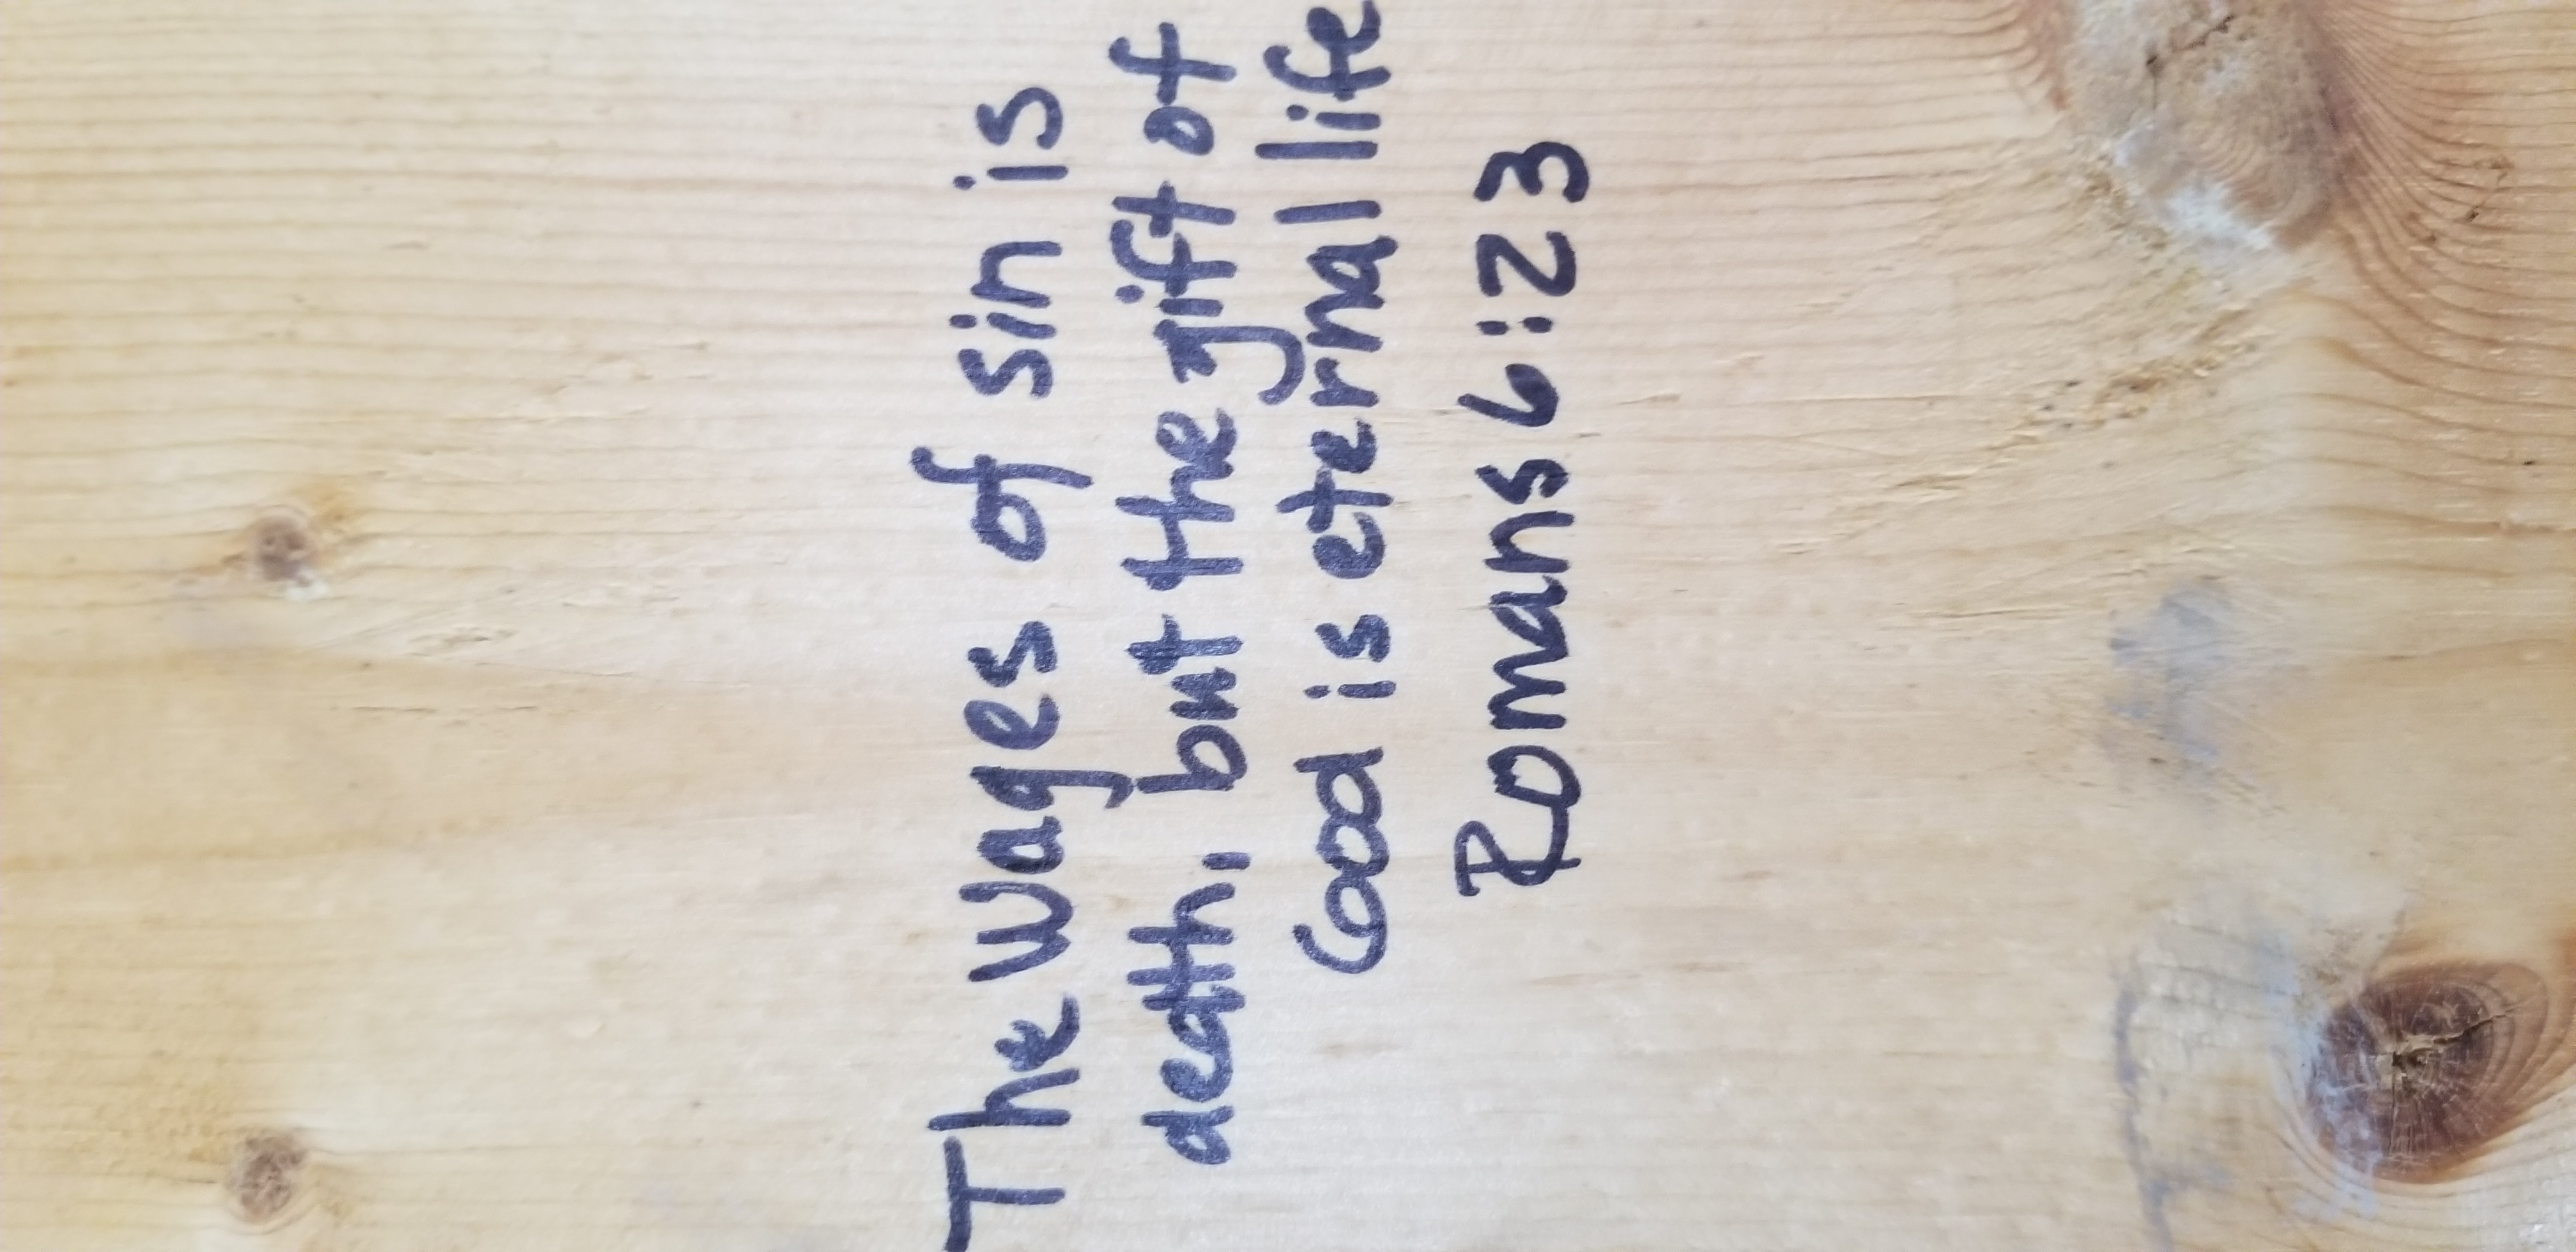 The wages of sin is
death, but the gift of
God is eternal life
Romans 6:23